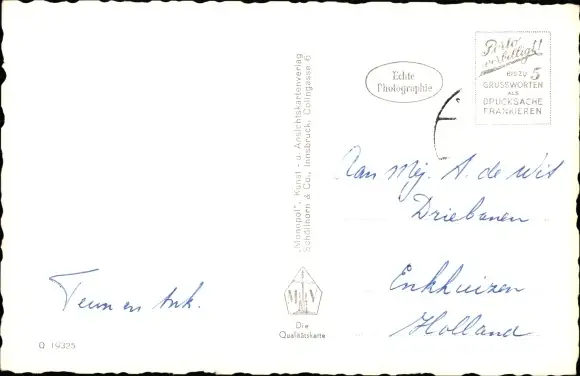 Echte
Photographie
Porto
verbilligt!
BIS ZU 5
GRUSSWORTEN
ALS
DRUCKSACHE
FRANKIEREN
"Monopol", Kunst- u. Ansichtskartenverlag
Schöllhorn & Co., Innsbruck, Colingasse 6
Aan Mej. A. de Wit
Driebanen
Enkhuizen
Holland
Teun en Ank.
M V
Die
Qualitätskarte
Q 19325